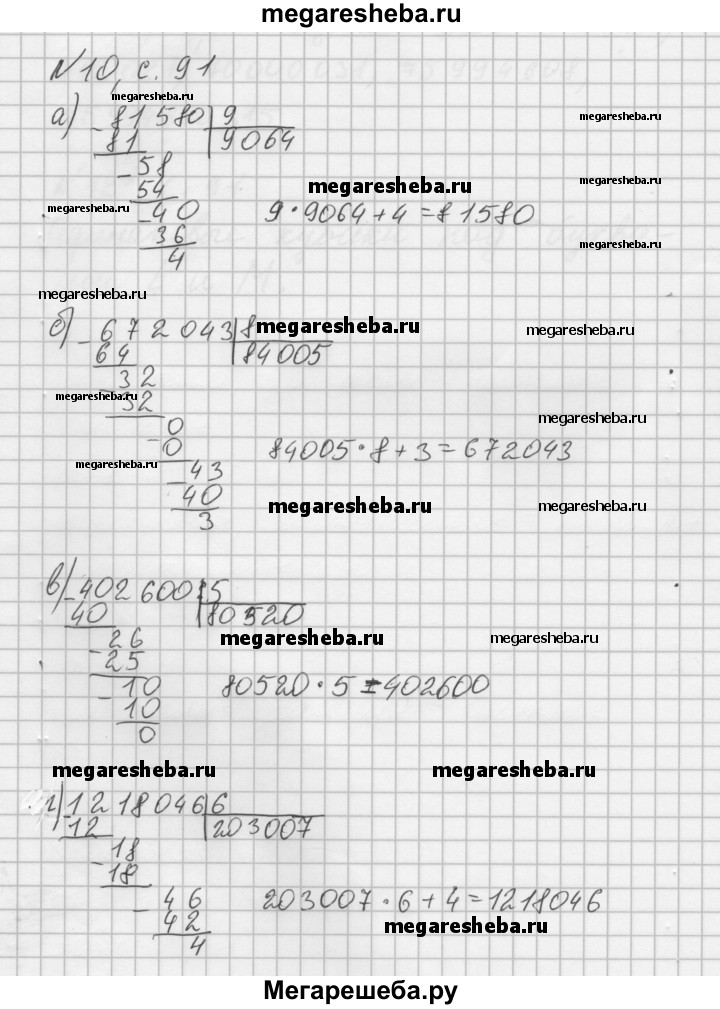 megaresheba.ru
N10, с. 91
megaresheba.ru
а) - 81 580 | 9
megaresheba.ru
81 9064
- 58
megaresheba.ru
54
megaresheba.ru
megaresheba.ru
- 40 9 · 9064 + 4 = 81580
megaresheba.ru
36
4
megaresheba.ru
б) - 672 043 | 8
megaresheba.ru
megaresheba.ru
64 84005
- 32
megaresheba.ru
32
megaresheba.ru
0
- 0 84005 · 8 + 3 = 672043
megaresheba.ru
- 43
40
megaresheba.ru
megaresheba.ru
3
в) - 402 600 | 5
40 80520
- 26
megaresheba.ru
megaresheba.ru
25
- 10 80520 · 5 = 402600
10
0
megaresheba.ru
megaresheba.ru
г) - 1 218 046 | 6
12 203007
- 18
18
- 46 203007 · 6 + 4 = 1218046
42
megaresheba.ru
4
Мегарешеба.ру